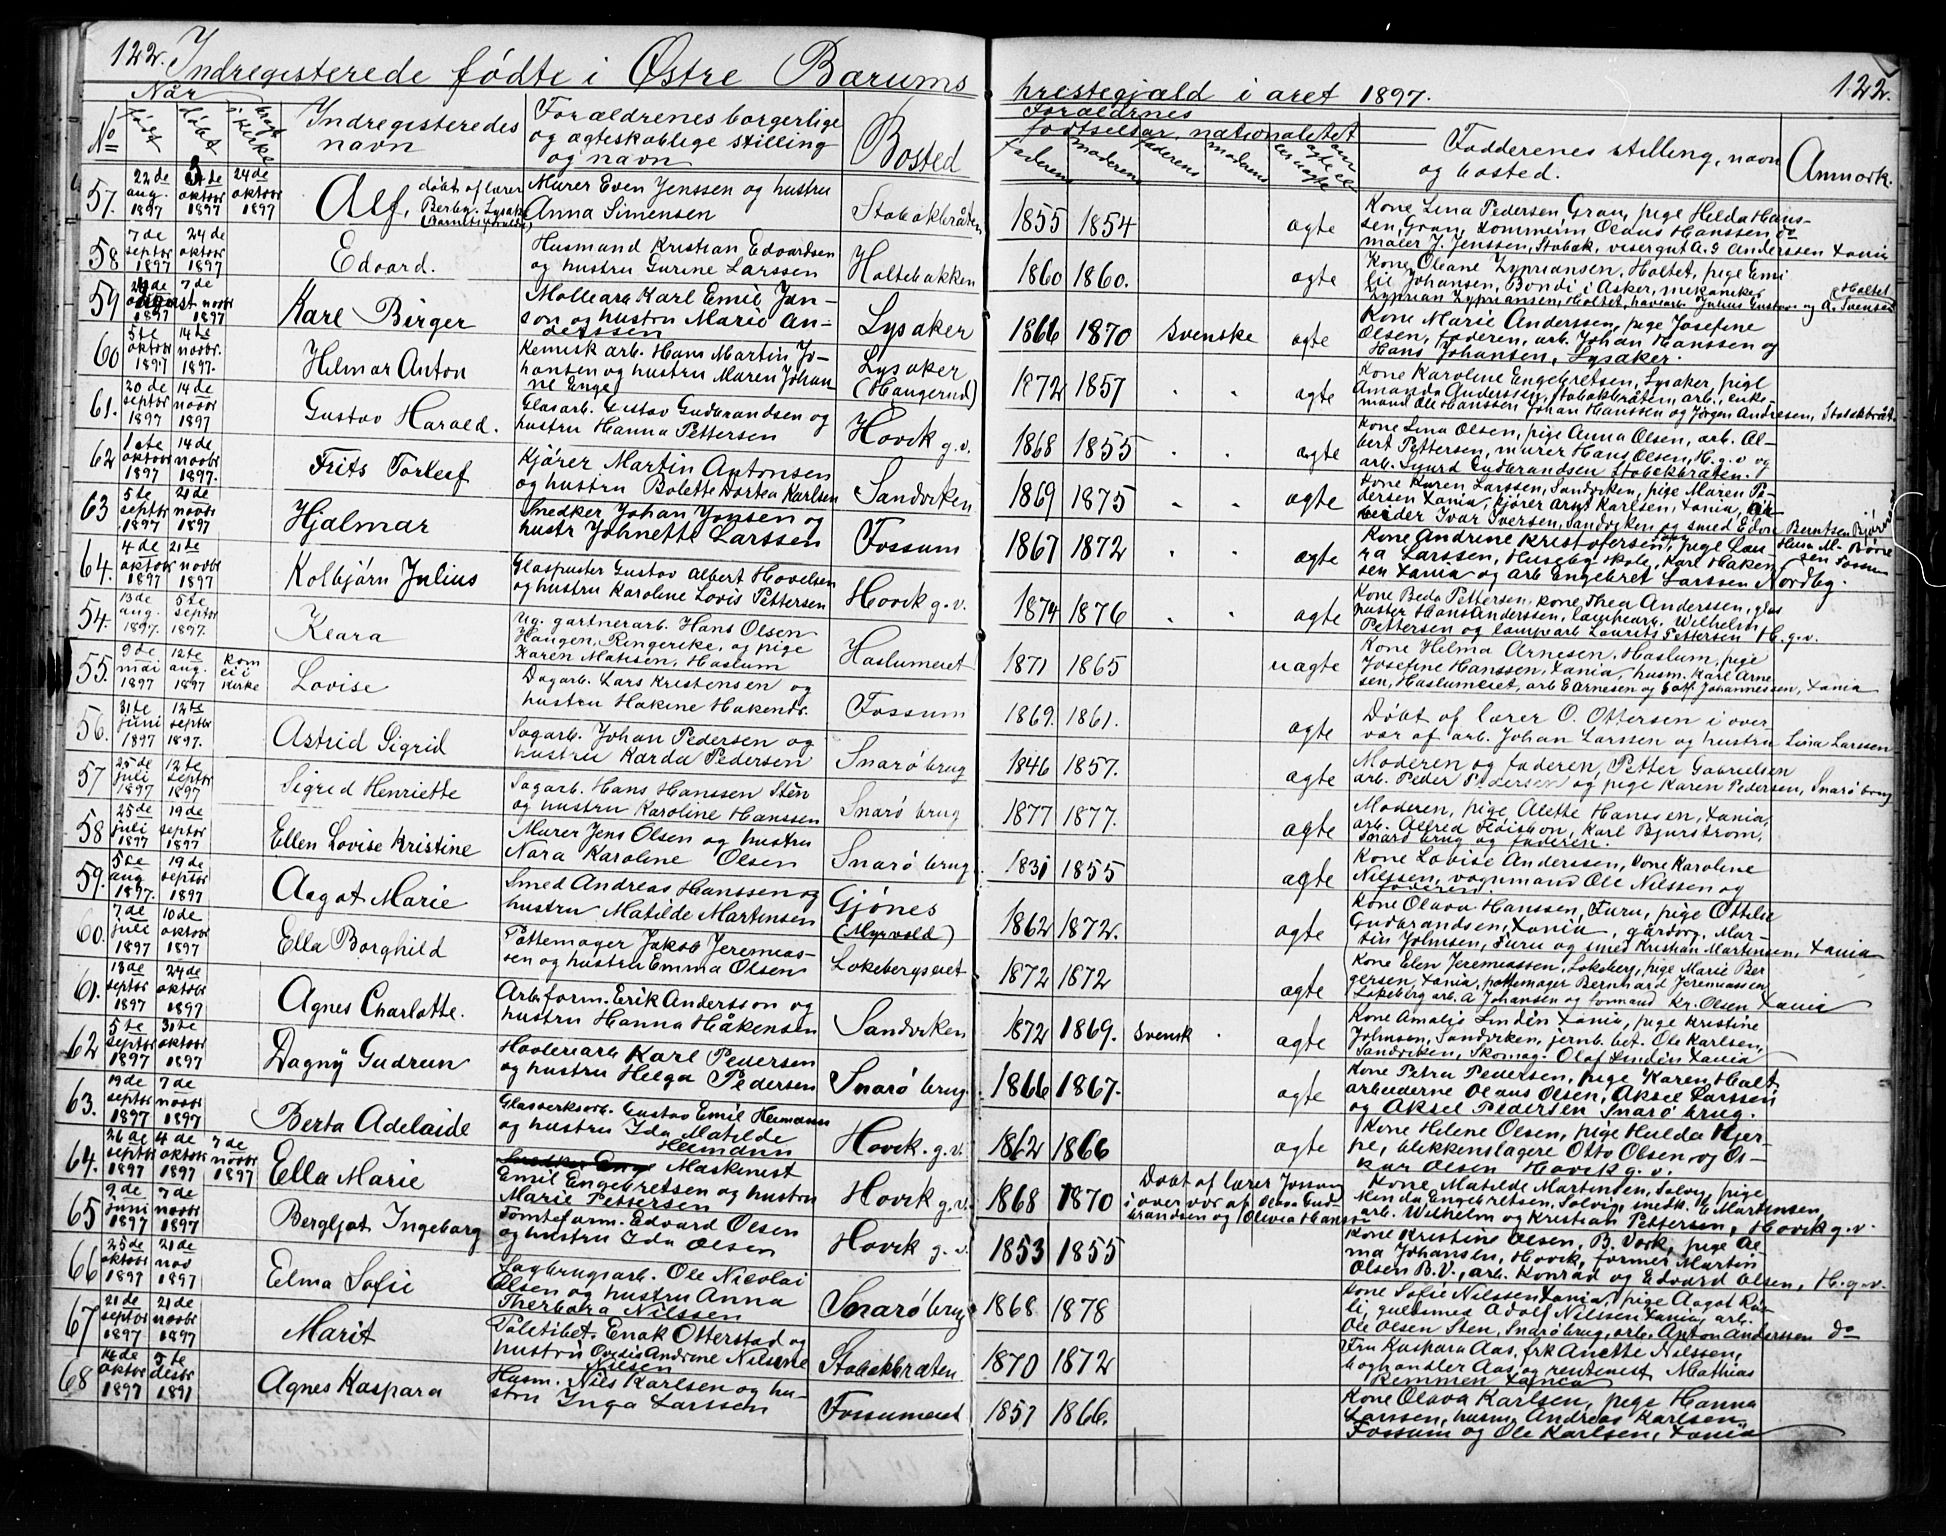 122. Indregisterede fødte i Østre Bærums
præstegjæld i året 1897. 122.
No
Når
født
døbt
bragt i kirke
Indregisteredes navn
Forældrenes borgerlige og ægteskablige stilling og navn
Bosted
Forældrenes
fødselsår nationalitet
faderens moderens faderens moderens
Fadderenes stilling, navn og bosted.
Anmærk.
57. 22de aug. 1897 3de oktobr 1897 24de oktobr 1897 Alf, døbt af lærer Berby, Lysak
Murer Even Jenssen og hustru
Anna Simensen
Stabækbråten 1855 1854 ægte
Kone Lina Pedersen, Gran, pige Hilda Hans-
sen, Gran, tømmerm. Olaus Hanssen do
maler J. Jenssen, Stabæk, visergut A. I Anderssen Xania
58 7de septbr 1897 24de oktobr 1897 Edvard.
Husmand Kristian Edvardsen
og hustru Gurine Larssen
Holtebakken 1860 1860. ægte
Kone Oleane Zypriansen, Holtet, pige Emi
lie Johansen, Bondi i Asker, mekaniker
Zyprian Zypriansen, Holtet, høvlarb. Julius Gustav og A. Svensen Holtet
59 1897 7de novbr 1897 Karl Birger
Møllearb Karl Emil Jan-
son og hustru Marie An-
derssen
Lysaker 1866 1870 Svenske ægte
Kone Marie Anderssen, pige Josefine
Olsen, faderen, arb. Johan Hanssen og
Hans Johansen, Lysaker.
60 5te oktobr 1897 14te novbr. 1897. Helmar Anton
Kemisk arb. Hans Martin Jo-
hansen og hustru Maren Johan
ne Enge
Lysaker (Haugerud) 1872 1857 " " ægte
Kone Karoline Engebretsen, Lysaker, pige
Amanda Anderssen, Stabækbråten, arb., enke-
mand Ole Hanssen Johan Hanssen og Jørgen Andresen, Stabækbråt.
61. 20de septbr 1897 14de novbr 1897 Gustav Harald.
Glasarb. Gustav Gudbrandsen og
hustru Hanna Pettersen
Høvik g.v. 1868 1855 " " ægte
Kone Lina Olsen, pige Anna Olsen, arb. Al-
bert Pettersen, murer Hans Olsen, H.g.v og
arb. Sjurd Gudbrandsen Stabækbråten.
62 1ste oktobr 1897 14de novbr 1897. Frits Torleif
Kjører Martin Antonsen
og hustru Bolette Dortea Karlsen
Sandviken 1869 1875 " " ægte
Kone Karen Larssen, Sandviken, pige Maren Pe-
dersen Xania, kjører Karlsen, Xania, ar-
beider Ivar Iversen, Sandviken og smed Edv. Berntsen
63 5te septbr 1897 21de novbr 1897 Hjalmar
Snedker Johan Jonsen og
hustr Johnette Larssen
Fossum 1867 1872 " " ægte
Kone Andrine Kristofersen, pige Lau
ra Larssen, Huseby skole, Karl Haken
sen Xania og arb Engebret Larssen Nordby.
64. 4de oktobr 1897 21te novbr 1897 Kolbjørn Julius
Glaspuster Gustav Albert Hovelsen
og hustru Karoline Lovis Pettersen
Høvik g.v. 1874 1876 " " ægte
Kone Beda Pettersen, kone Thea Anderssen, glas
puster Hans Anderssen, lampearb. Wilhelm
Pettersen og lampearb Laurits Pettersen H.g.v.
54. 13de aug. 1897. 5te septbr 1897. Klara
Ug. gartnerarb. Hans Olsen
Haugen, Ringerike, og pige
Karen Matisen, Haslum
Haslumeiet 1871 1865 uægte
Kone Helma Arnesen, Haslum, pige
Josefine Hanssen, Xania, husm. Karl Arne
sen, Haslumeiet, arb E Arnesen og Johannessen, Xania
55. 9de mai 1897 12te aug. 1897 kom ei i kirke Lovise
Dagarb. Lars Kristensen og
hustru Hakine Hakensdr.
Fossum 1869. 1861. ægte
Døbt af lærer O. Ottersen i over
vær af arb. Johan Larssen og hustru Lina Larssen
56. 31te juni 1897 12te septbr 1897. Astrid Sigrid
Sagarb. Johan Pedersen og
hustru Karda Pedersen
Snarøbrug 1846 1857. ægte
Moderen og faderen, Petter Gabrielsen
arb. Peder Pedersen og pige Karen Pedersen, Snarøbrug
57 25de juli 1897 12te septbr 1897 Sigred Henriette
Sagarb. Hans Hanssen Stén
og hustru Karoline Hanssen
Snarø brug 1877 1877. ægte
Moderen, pige Alette Hanssen, Xania,
arb. Alfred, Karl Bjurstrøm,
Snarø brug og faderen.
58 25de juli 1897 19de septbr 1897 Ellen Lovise Kristine
Murer Jens Olsen og hustru
Nara Karoline Olsen
Snarø brug 1831 1855 ægte
Kone Lovise Anderssen, kone Karoline
Nilssen, vognmand Ole Nilssen og
faderen.
59. 5te aug 1897. 19de septbr 1897 Aagot Marie
Smed Andreas Hanssen og
hustru Matilde Martinsen
Gjønes (Myrvold) 1862 1872. ægte
Kone Olava Hanssen, Furu, pige Ottilie
Gudbrandsen, Xania, gårdbrg. Mar-
tin Johnsen, Furu og smed Kristian Martinsen, Xania
60. 7de juli 1897 10de oktobr 1897 Ella Borghild
Pottemager Jakob Jeremias-
sen og hustru Emma Olsen
Løkebergseiet 1872 1872 ægte
Kone Elen Jeremiassen, Løkeberg, pige Marie Ber
gersen, Xania, pottemager Bernhard Jeremiassen
Løkeberg arb. A Johansen og formand Kr. Olsen Xania
61. 13de septbr 1897 24de oktobr 1897 Agnes Charlotte.
Arb. form. Erik Andersson og
hustru Hanna Håkensen
Sandviken 1872 1869. Svensk " ægte
Kone Amalia Lindén Xania, pige Kristine
Johnsen, Sandviken, jernb. bet. Ole Karlsen,
Sandviken, Skomag. Olaf Lindén Xania
62 5te septbr 1897 31te oktobr 1897 Dagny Gudrun
Høvleriarb Karl Pedersen
og hustru Helga Pedersen
Snarø brug. 1866 1867. ægte
Kone Petra Pedersen, pige Karen Holt,
arbeiderne Olaus Olsen, Aksel Larssen
og Aksel Pedersen Snarø brug.
63. 19de septbr 1897 7de novbr 1897 Berta Adelaide
Glasverksarb. Gustav Emil Heimann
og hustru Ida Matilde
Heimann
Høvik. g.v. 1862 1866 ægte
Kone Helene Olsen, pige Hulda Hjer-
pe, blikkenslagere Otto Olsen og Os-
kar Olsen Høvik g.v.
64. 26de septbr 1897 4de oktobr 1897 7de novbr 1897 Ella Marie
Maskinist
Emil Engebretsen og hustru
Marie Pettersen
Høvik g.v. 1868 1870 Døbt af lærer Josson
i overvær af Olava Gud
brandsen og Olivia Hansen
Kone Matilde Martinsen, Solvig, pige
Minda Engebretsen, Solvig, snedk. E Martinsen,
arb. Wilhelm og Kristian Pettersen, Høvik g.v.
65 9de juni 1897 7de novbr 1897 Bergljot Ingeborg
Tomteform. Edvard Olsen
og hustru Ida Olsen
Høvik g.v. 1853 1855
Kone Kristine Olsen, B. Værk, pige Al
ma Johansen, Høvik, former Martin
Olsen B.V., arb. Konrad og Edvard Olsen, H.g.v.
66 25de oktobr 1897 21de nov 1897 Elma Sofie
Sagbrugsarb. Ole Nicolai
Olsen og hustru Anna
Therbora Nilssen
Snarøbrug 1868 1878
Kone Sofie Nilssen Xania, pige Aagot
guldsmed Adolf Nilssen Xania, arb.
Ole Olsen Sten, Snarøbrug, arb. Anton Anderssen do
67 21de septbr 1897 21de novbr 1897 Marit
Politibet. Enok Otterstad og
hustru Ovedia Andrine Nilsine
Nilsen
Stabækbråten 1870 1872
Fru Kaspara Aas, frk Anette Nilssen,
boghandler Aas og rentenist Mathias
Remmen Xania
68 oktobr 1897 5te desbr Agnes Kaspara
Husm. Nils Karlsen og hu-
stru Inga Larssen
Fossumeiet 1857 1866.
Kone Olava Karlsen, pige Hanna
Larssen, husm. Andreas Karlsen
Fossum og Ole Karlsen, Xania